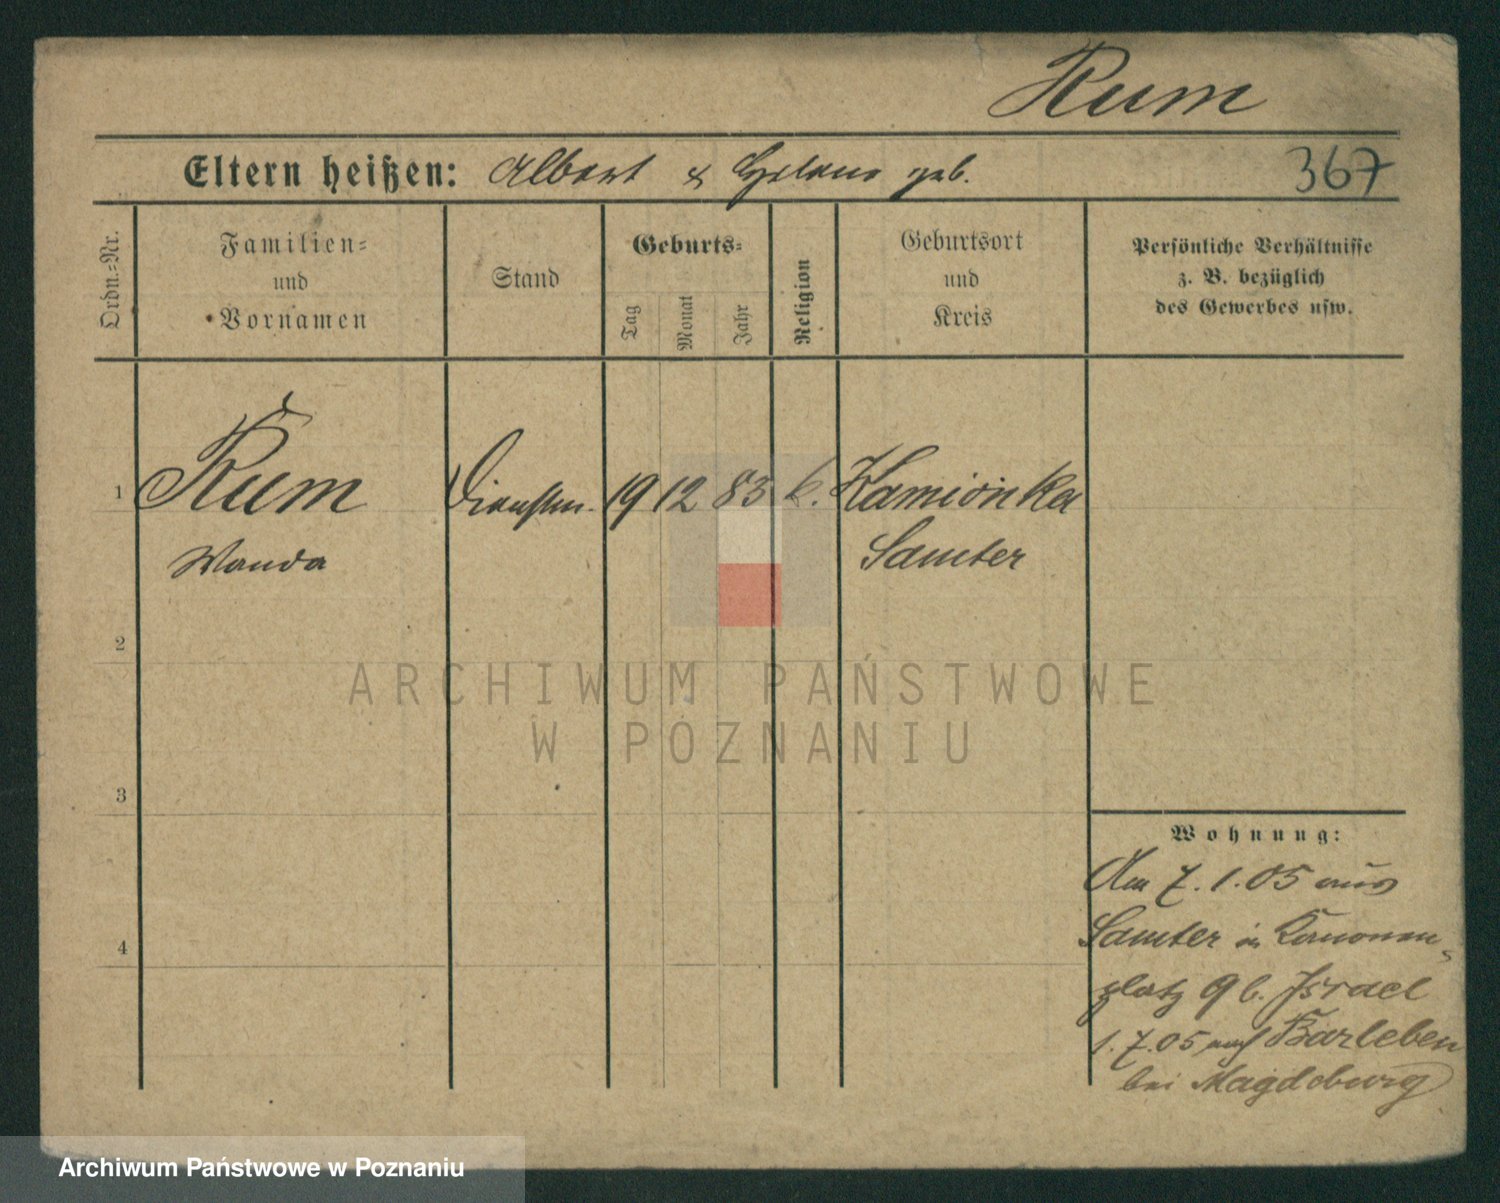 Rum
Eltern heißen: Albert & Helene geb.
367
Ordn.=Nr.
Familien=
und
Vornamen
Stand
Geburts=
Tag
Monat
Jahr
Religion
Geburtsort
und
Kreis
Persönliche Verhältnisse
z. B. bezüglich
des Gewerbes usw.
1
Rum
Dienstm.
19
12
83
k.
Kamionka
Wanda
Samter
2
3
4
Wohnung:
Am 7.1.05 aus
Samter in Kanonen-
platz 9 b. Israel
1.7.05 nach Barleben
bei Magdeburg
ARCHIWUM PAŃSTWOWE
W POZNANIU
Archiwum Państwowe w Poznaniu